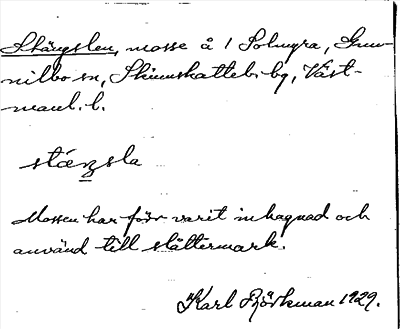 Stängslen, mosse å 1 Solmyra, Gun-
nilbo sn, Skinnskatteb. bg, Väst-
manl. l.
stäŋsla
Mossen har förr varit inhagnad och
använd till slåttermark.
Karl Björkman 1929.